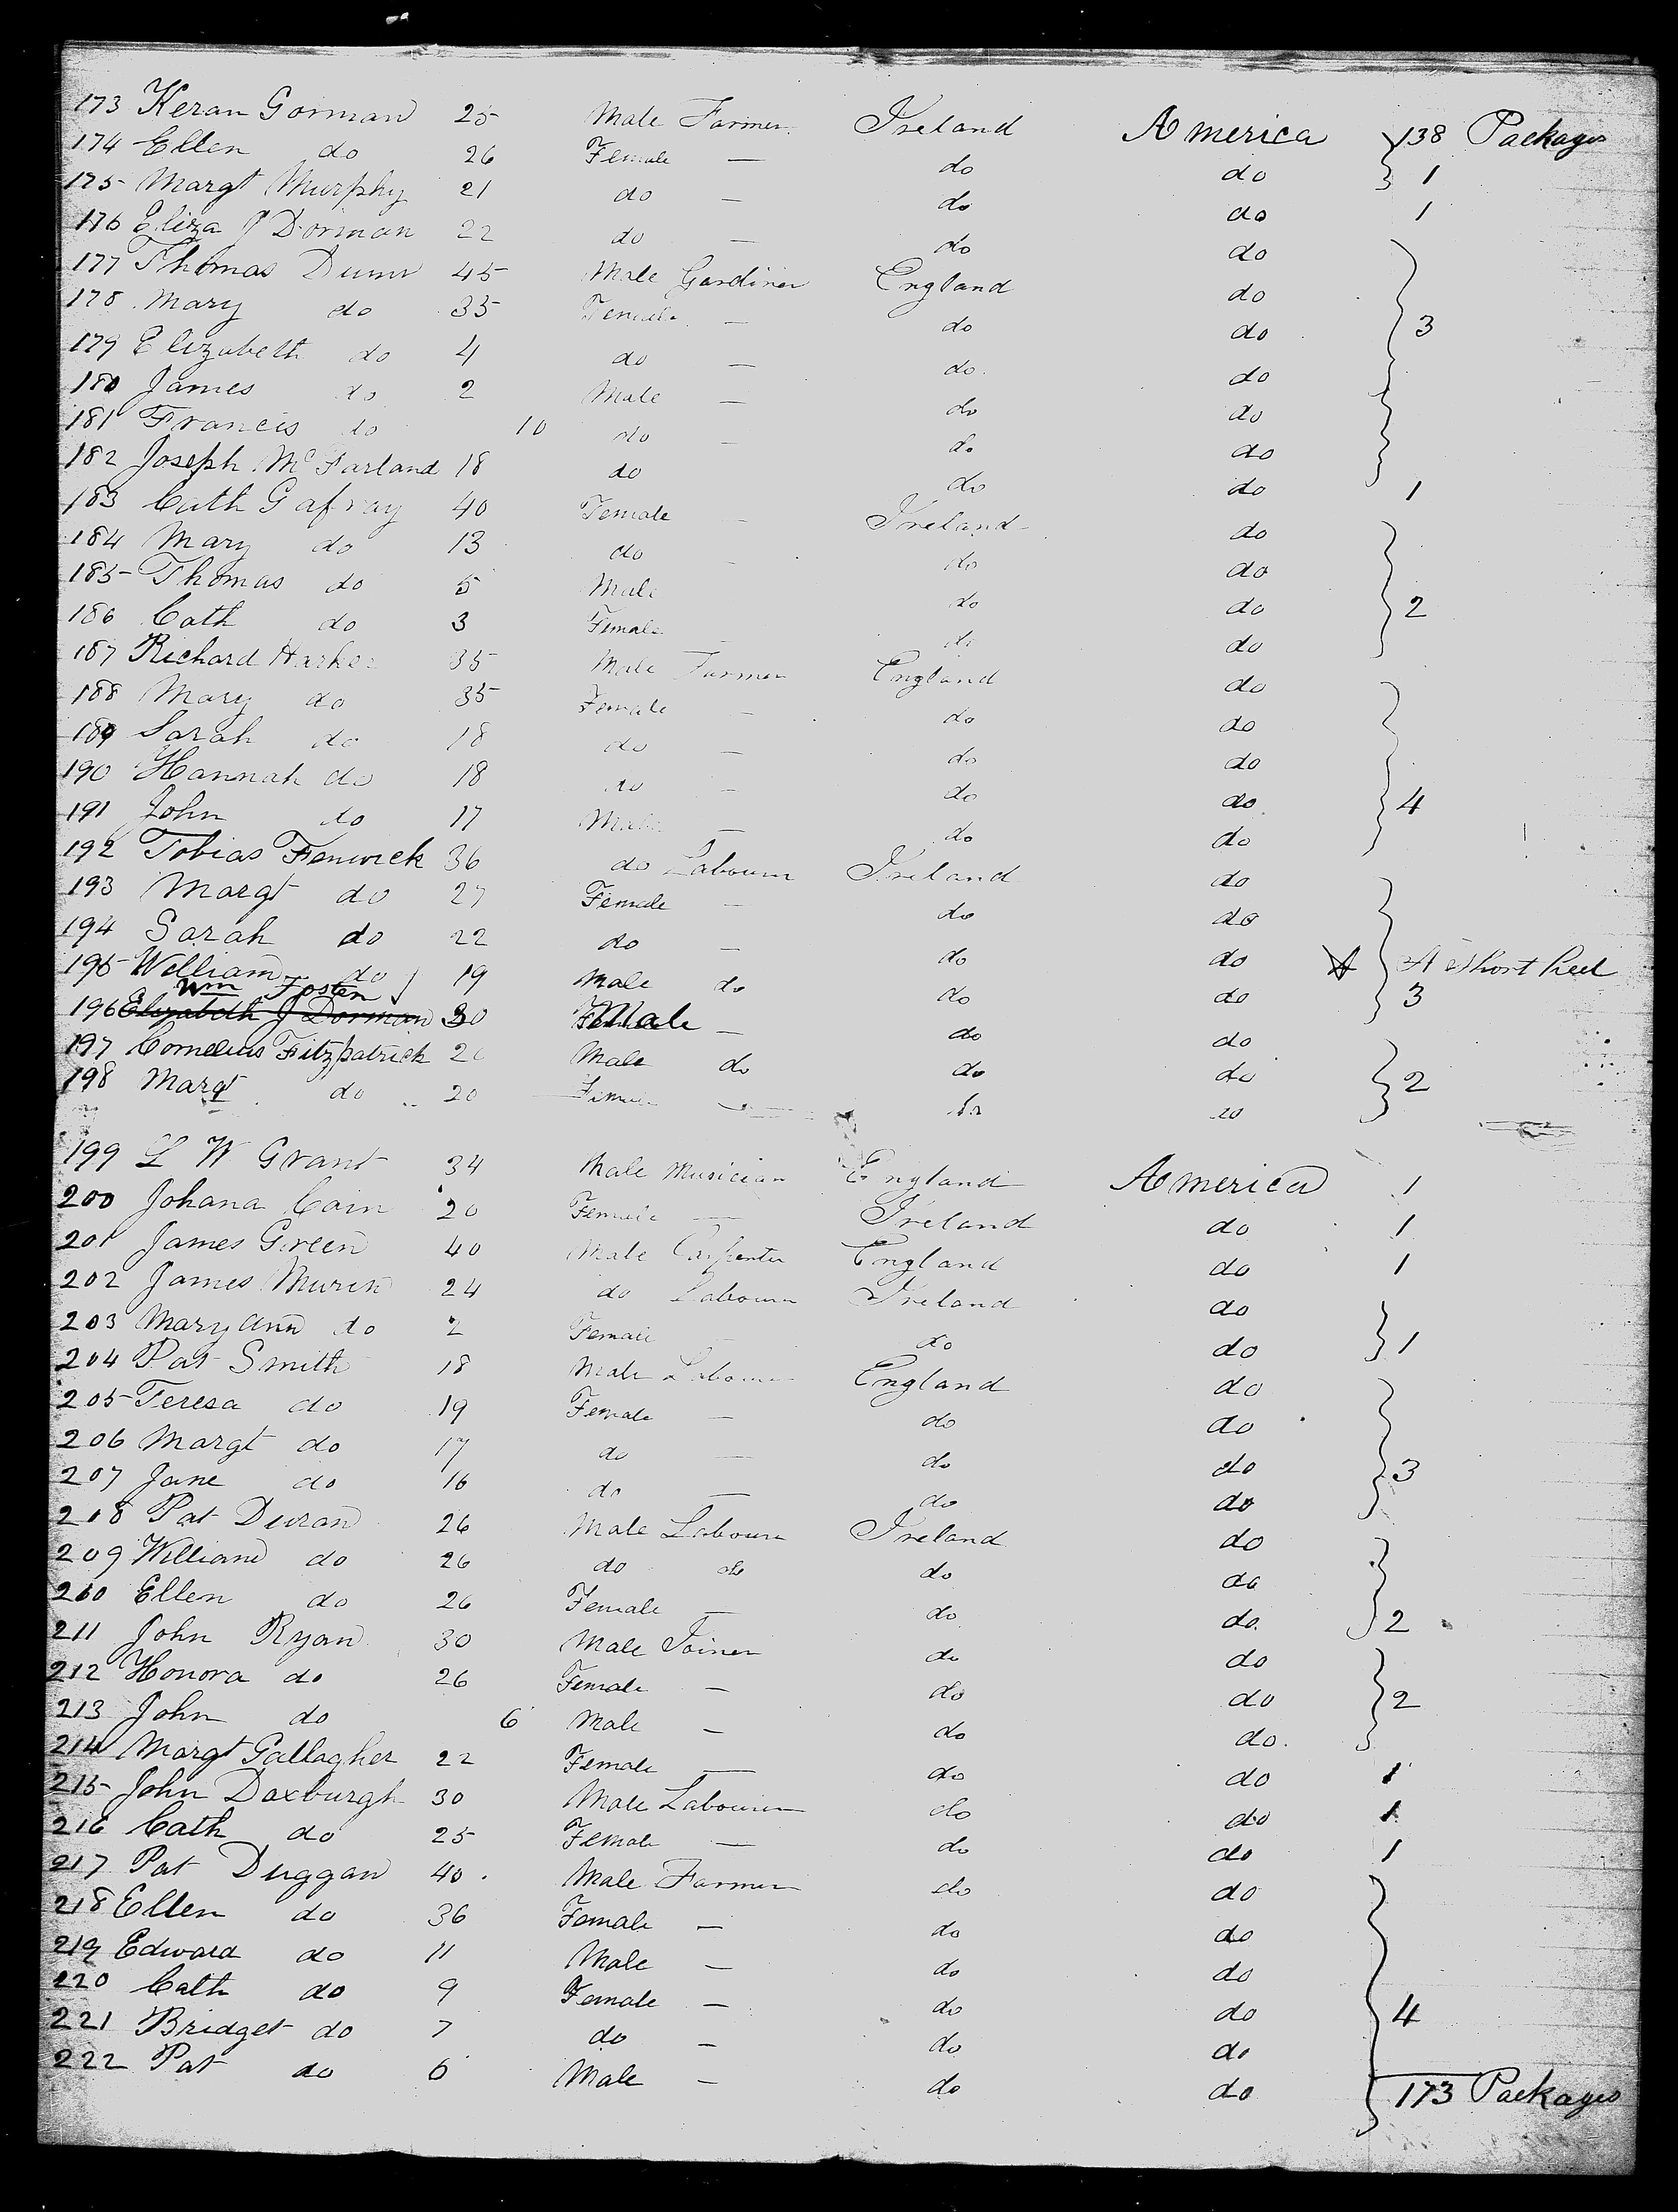 138 Packages
173 Keran Gorman 25 Male Farmer Ireland America
174 Ellen do 26 Female — do do 1
175 Margt Murphy 21 do — do do 1
176 Eliza J Dorman 22 do — do do
177 Thomas Dunn 45 Male Gardiner England do
178 Mary do 35 Female — do do 3
179 Elizabeth do 4 do — do do
180 James do 2 Male — do do
181 Francis do 10 do — do do
182 Joseph McFarland 18 do do do 1
183 Cath Gafray 40 Female — Ireland do
184 Mary do 13 do — do do
185 Thomas do 5 Male do do 2
186 Cath do 3 Female — do do
187 Richard Harker 35 Male Farmer England do
188 Mary do 35 Female — do do
189 Sarah do 18 do — do do
190 Hannah do 18 do — do do 4
191 John do 17 Male — do do
192 Tobias Fenwick 36 do Labourer Ireland do
193 Margt do 27 Female — do do
194 Sarah do 22 do — do do A short heel
195 William do 19 Male do do do 3
Wm Foster
196 Elizabeth J Dorman 30 Male — do do
197 Cornelius Fitzpatrick 26 Male do do do 2
198 Margt do 20 Female — do do
199 L W Grant 34 Male Musician England America 1
200 Johana Cain 20 Female — Ireland do 1
201 James Green 40 Male Carpenter England do 1
202 James Murin 24 do Labourer Ireland do
203 Mary Ann do 2 Female — do do 1
204 Pat Smith 18 Male Labourer England do
205 Teresa do 19 Female — do do
206 Margt do 17 do — do do 3
207 Jane do 16 do — do do
208 Pat Duran 26 Male Labourer Ireland do
209 William do 26 do do do do
210 Ellen do 26 Female — do do 2
211 John Ryan 30 Male Joiner do do
212 Honora do 26 Female — do do 2
213 John do 6 Male — do do
214 Margt Gallagher 22 Female — do do 1
215 John Doxburgh 30 Male Labourer do do 1
216 Cath do 25 Female — do do 1
217 Pat Duggan 40 Male Farmer do do
218 Ellen do 36 Female — do do
219 Edward do 11 Male — do do
220 Cath do 9 Female — do do 4
221 Bridget do 7 do — do do
222 Pat do 6 Male — do do
173 Packages